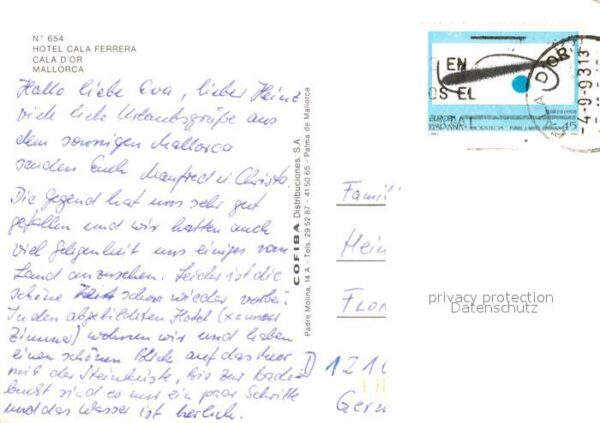 N° 654
HOTEL CALA FERRERA
CALA D'OR
MALLORCA
Hallo liebe Eva, lieber Heinz
viele liebe Urlaubsgrüße aus
dem sonnigen Mallorca
senden Euch Manfred u. Christa.
Die Gegend hat uns sehr gut
gefallen und wir hatten auch
viel Gelegenheit uns einiges vom
Land anzusehen. Leider ist die
schöne Zeit schon wieder vorbei.
In den abgebildeten Hotel (x unser
Zimmer) wohnen wir und haben
einen schönen Blick auf das Meer
mit der Steinküste, bis zur Bade-
bucht sind es nur ein paar Schritte
und das Wasser ist herrlich.
COFIBA Distribuciones, S.A.
Padre Molina, 14 A - Tels. 29 52 87 - 41 50 65 - Palma de Mallorca
EN
OS EL
D'OR
-4.-9-93 13
EUROPA
ESPAÑA
45
Famil
Hein
Flor
D 1210
Germ
privacy protection
Datenschutz